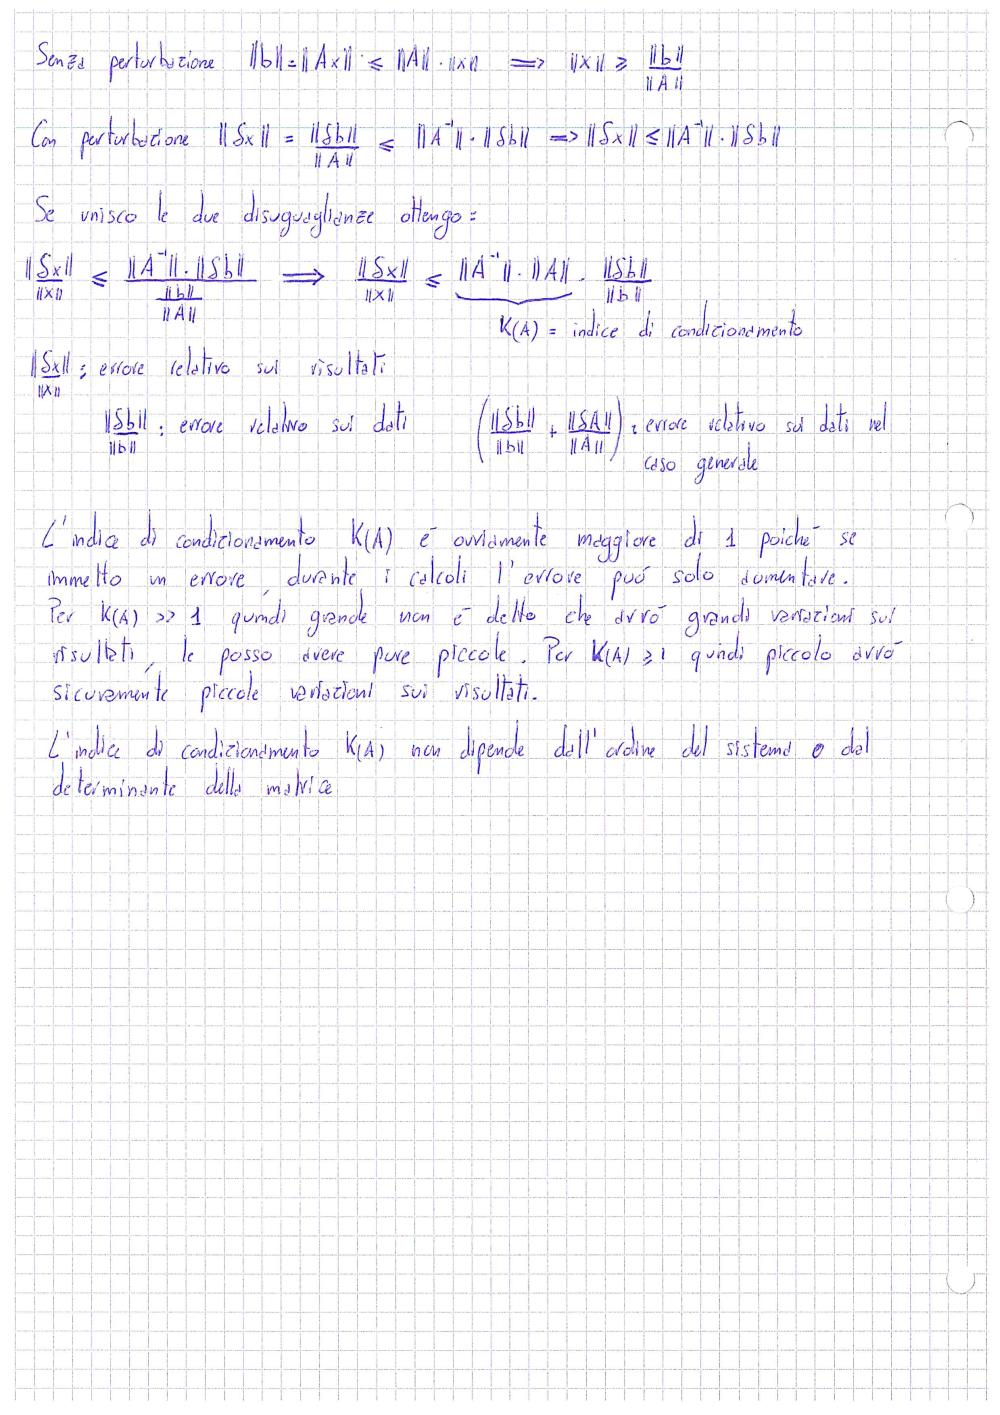 Senza perturbazione ||b|| = ||Ax|| ≤ ||A|| · ||x|| ⟹ ||x|| ≥ ||b||/||A||
Con perturbazione ||δx|| = ||δb||/||A|| ≤ ||A⁻¹|| · ||δb|| ⟹ ||δx|| ≤ ||A⁻¹|| · ||δb||
Se unisco le due disuguaglianze ottengo:
||δx||/||x|| ≤ ||A⁻¹|| · ||δb|| / (||b||/||A||) ⟹ ||δx||/||x|| ≤ ||A⁻¹|| · ||A|| · ||δb||/||b||
K(A) = indice di condizionamento
||δx||/||x|| : errore relativo sui risultati
||δb||/||b|| : errore relativo sui dati (||δb||/||b|| + ||δA||/||A||) : errore relativo sui dati nel
caso generale
L'indice di condizionamento K(A) é ovviamente maggiore di 1 poiché se
immetto un errore, durante i calcoli l'errore puó solo aumentare.
Per K(A) >> 1 quindi grande non é detto che avró grandi variazioni sui
risultati, le posso avere pure piccole. Per K(A) ≥ 1 quindi piccolo avró
sicuramente piccole variazioni sui risultati.
L'indice di condizionamento K(A) non dipende dall'ordine del sistema o dal
determinante della matrice